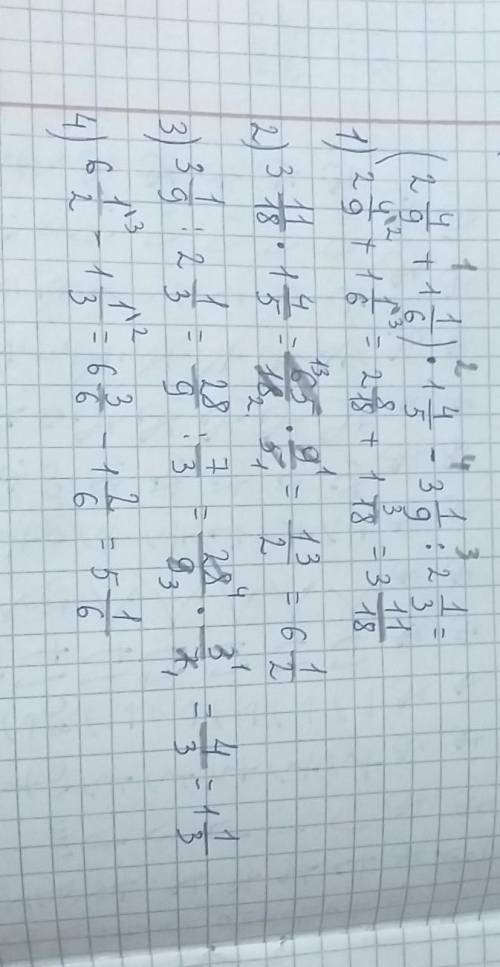 (2 4/9 + 1 1/6) · 1 4/5 - 3 1/9 : 2 1/3 =
1) 2 4/9 + 1 1/6 = 2 8/18 + 1 3/18 = 3 11/18
2) 3 11/18 · 1 4/5 = 65/18 · 9/5 = 13/2 = 6 1/2
3) 3 1/9 : 2 1/3 = 28/9 : 7/3 = 28/9 · 3/7 = 4/3 = 1 1/3
4) 6 1/2 - 1 1/3 = 6 3/6 - 1 2/6 = 5 1/6